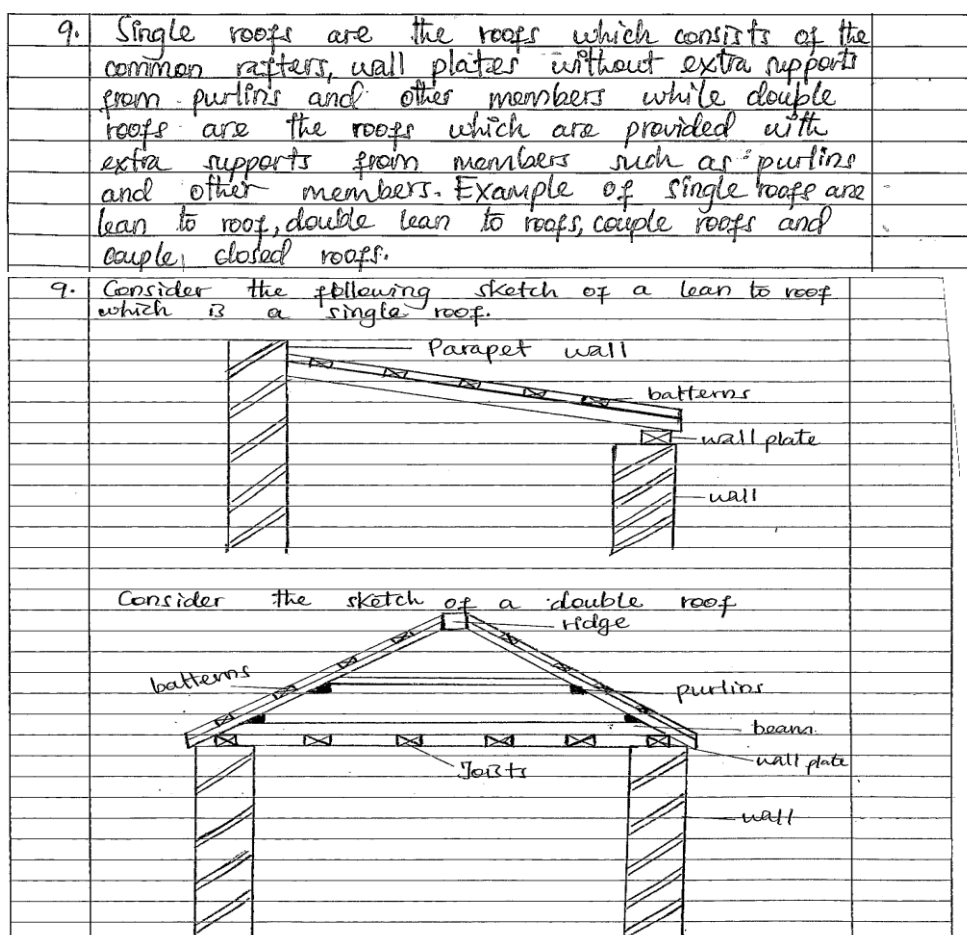 9. Single roofs are the roofs which consists of the
common rafters, wall plates without extra supports
from purlins and other members while double
roofs are the roofs which are provided with
extra supports from members such as purlins
and other members. Example of single roofs are
lean to roof, double lean to roofs, couple roofs and
couple, closed roofs.
9. Consider the following sketch of a lean to roof
which is a single roof.
Parapet wall
batterns
wall plate
wall
Consider the sketch of a double roof
ridge
batterns
purlins
beam
wall plate
Joists
wall